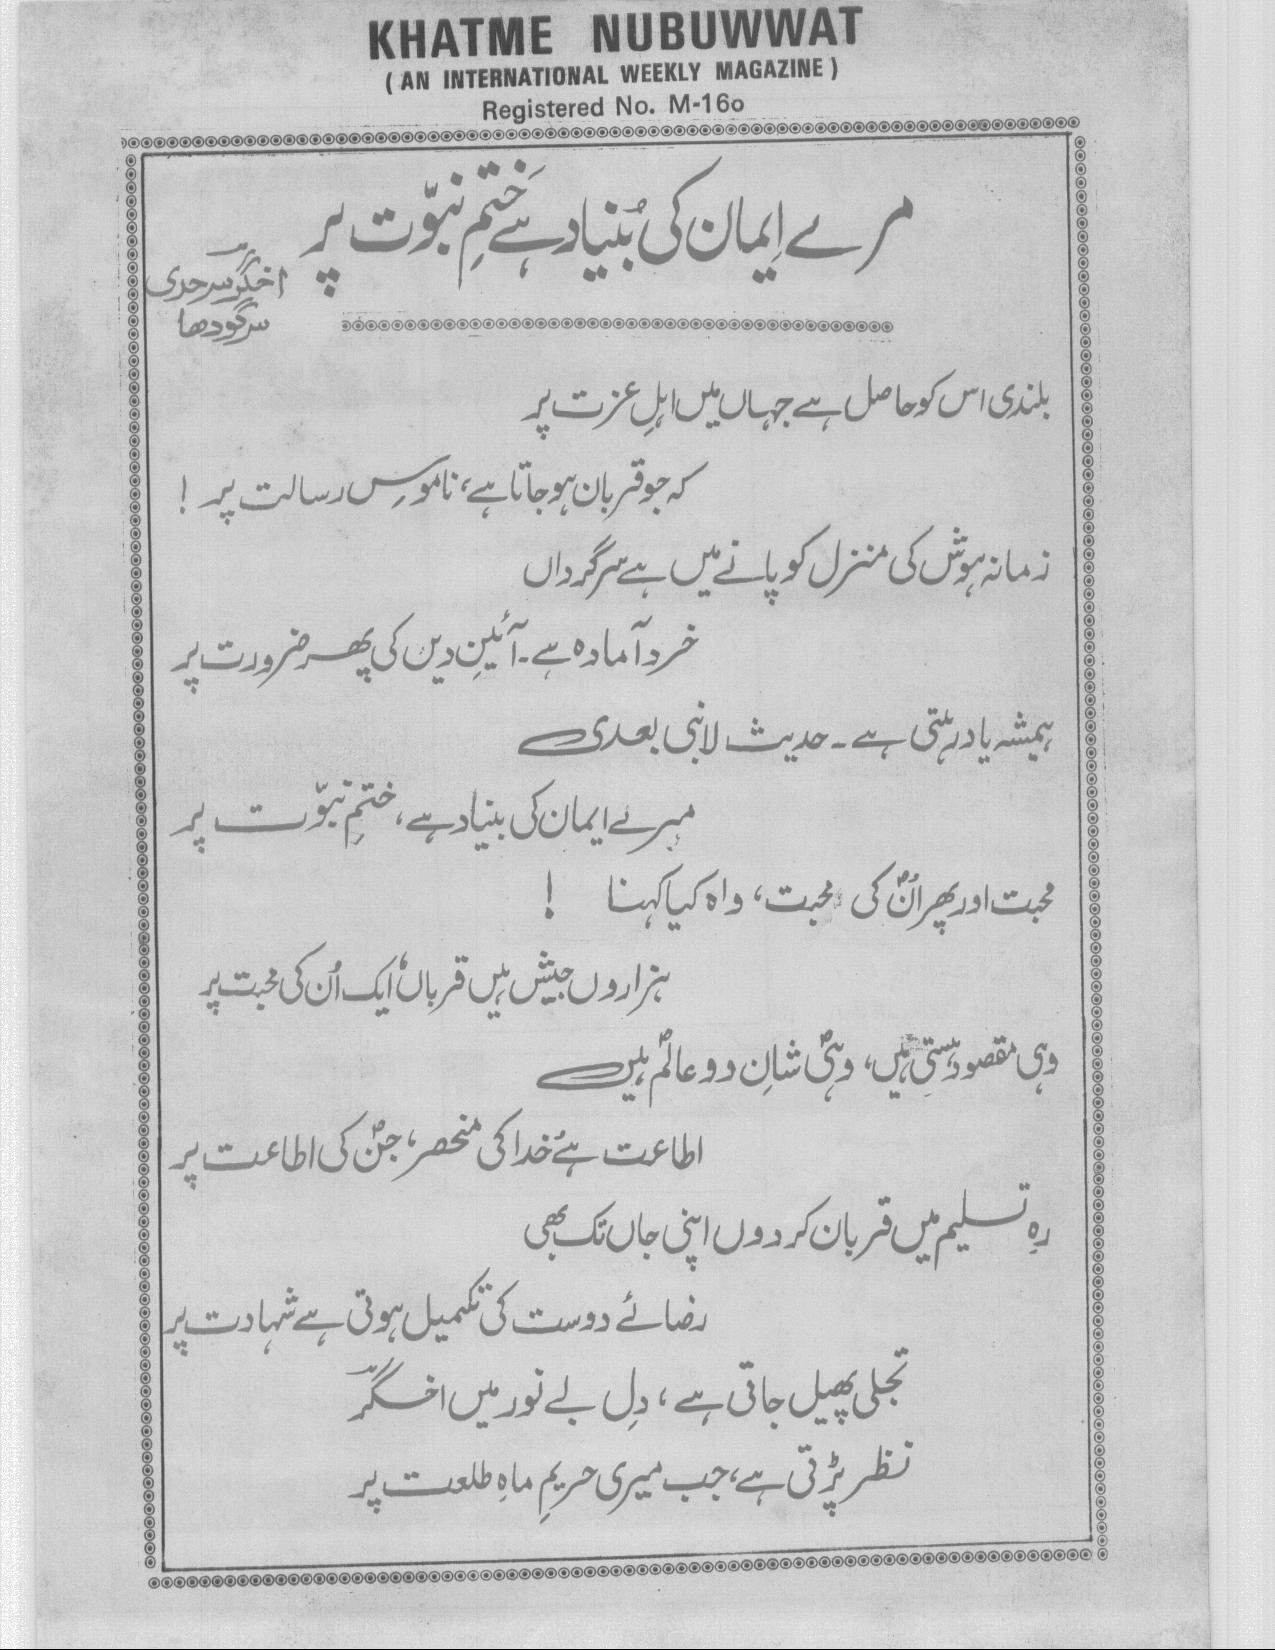 KHATME NUBUWWAT
( AN INTERNATIONAL WEEKLY MAGAZINE )
Registered No. M-160
مرے اِیمان کی بُنیاد ہے ختمِ نبوّت پر
اخگر سرحدی
سرگودھا
بلندی اس کو حاصل ہے جہاں میں اہلِ عزت پر
کہ جو قربان ہو جاتا ہے، ناموسِ رسالت پر !
زمانہ ہوش کی منزل کو پانے میں ہے سرگرداں
خرد آمادہ ہے۔ آئینِ دیں کی پھر ضرورت پر
ہمیشہ یاد رہتی ہے۔ حدیث لا نبی بعدی
میرے ایمان کی بنیاد ہے، ختمِ نبوّت پر
محبت اور پھر اُنؐ کی محبت، واہ کیا کہنا !
ہزاروں جیش ہیں قرباں، ایک اُن کی محبت پر
وہی مقصود ہستی ہیں، وہیؐ شانِ دو عالمؐ ہیں
اطاعت ہے خدا کی منحصر، جنؐ کی اطاعت پر
رہِ تسلیم میں قربان کر دوں اپنی جاں تک بھی
رضائے دوست کی تکمیل ہوتی ہے شہادت پر
تجلی پھیل جاتی ہے، دِل بے نور میں اخگر
نظر پڑتی ہے، جب میری حریمِ ماہِ طلعت پر